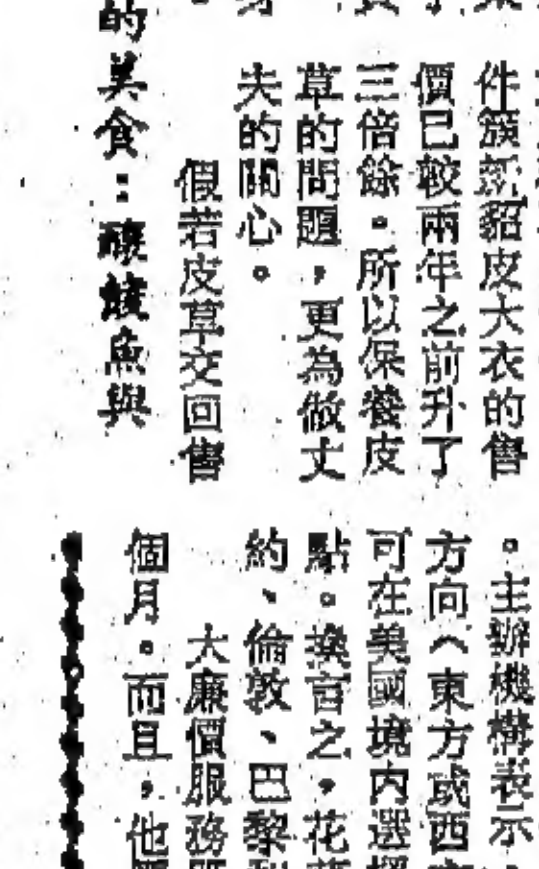 件簇新貂皮大衣的售
價已較兩年之前升了
三倍餘。所以保養皮
草的問題,更為做丈
夫的關心。
假若皮草交回售
的美食:釀鯪魚與
。主辦機構表示
方向(東方或西
可在美國境內選擇
點。換言之,花
約、倫敦、巴黎
大廉價服務
個月。而且,他